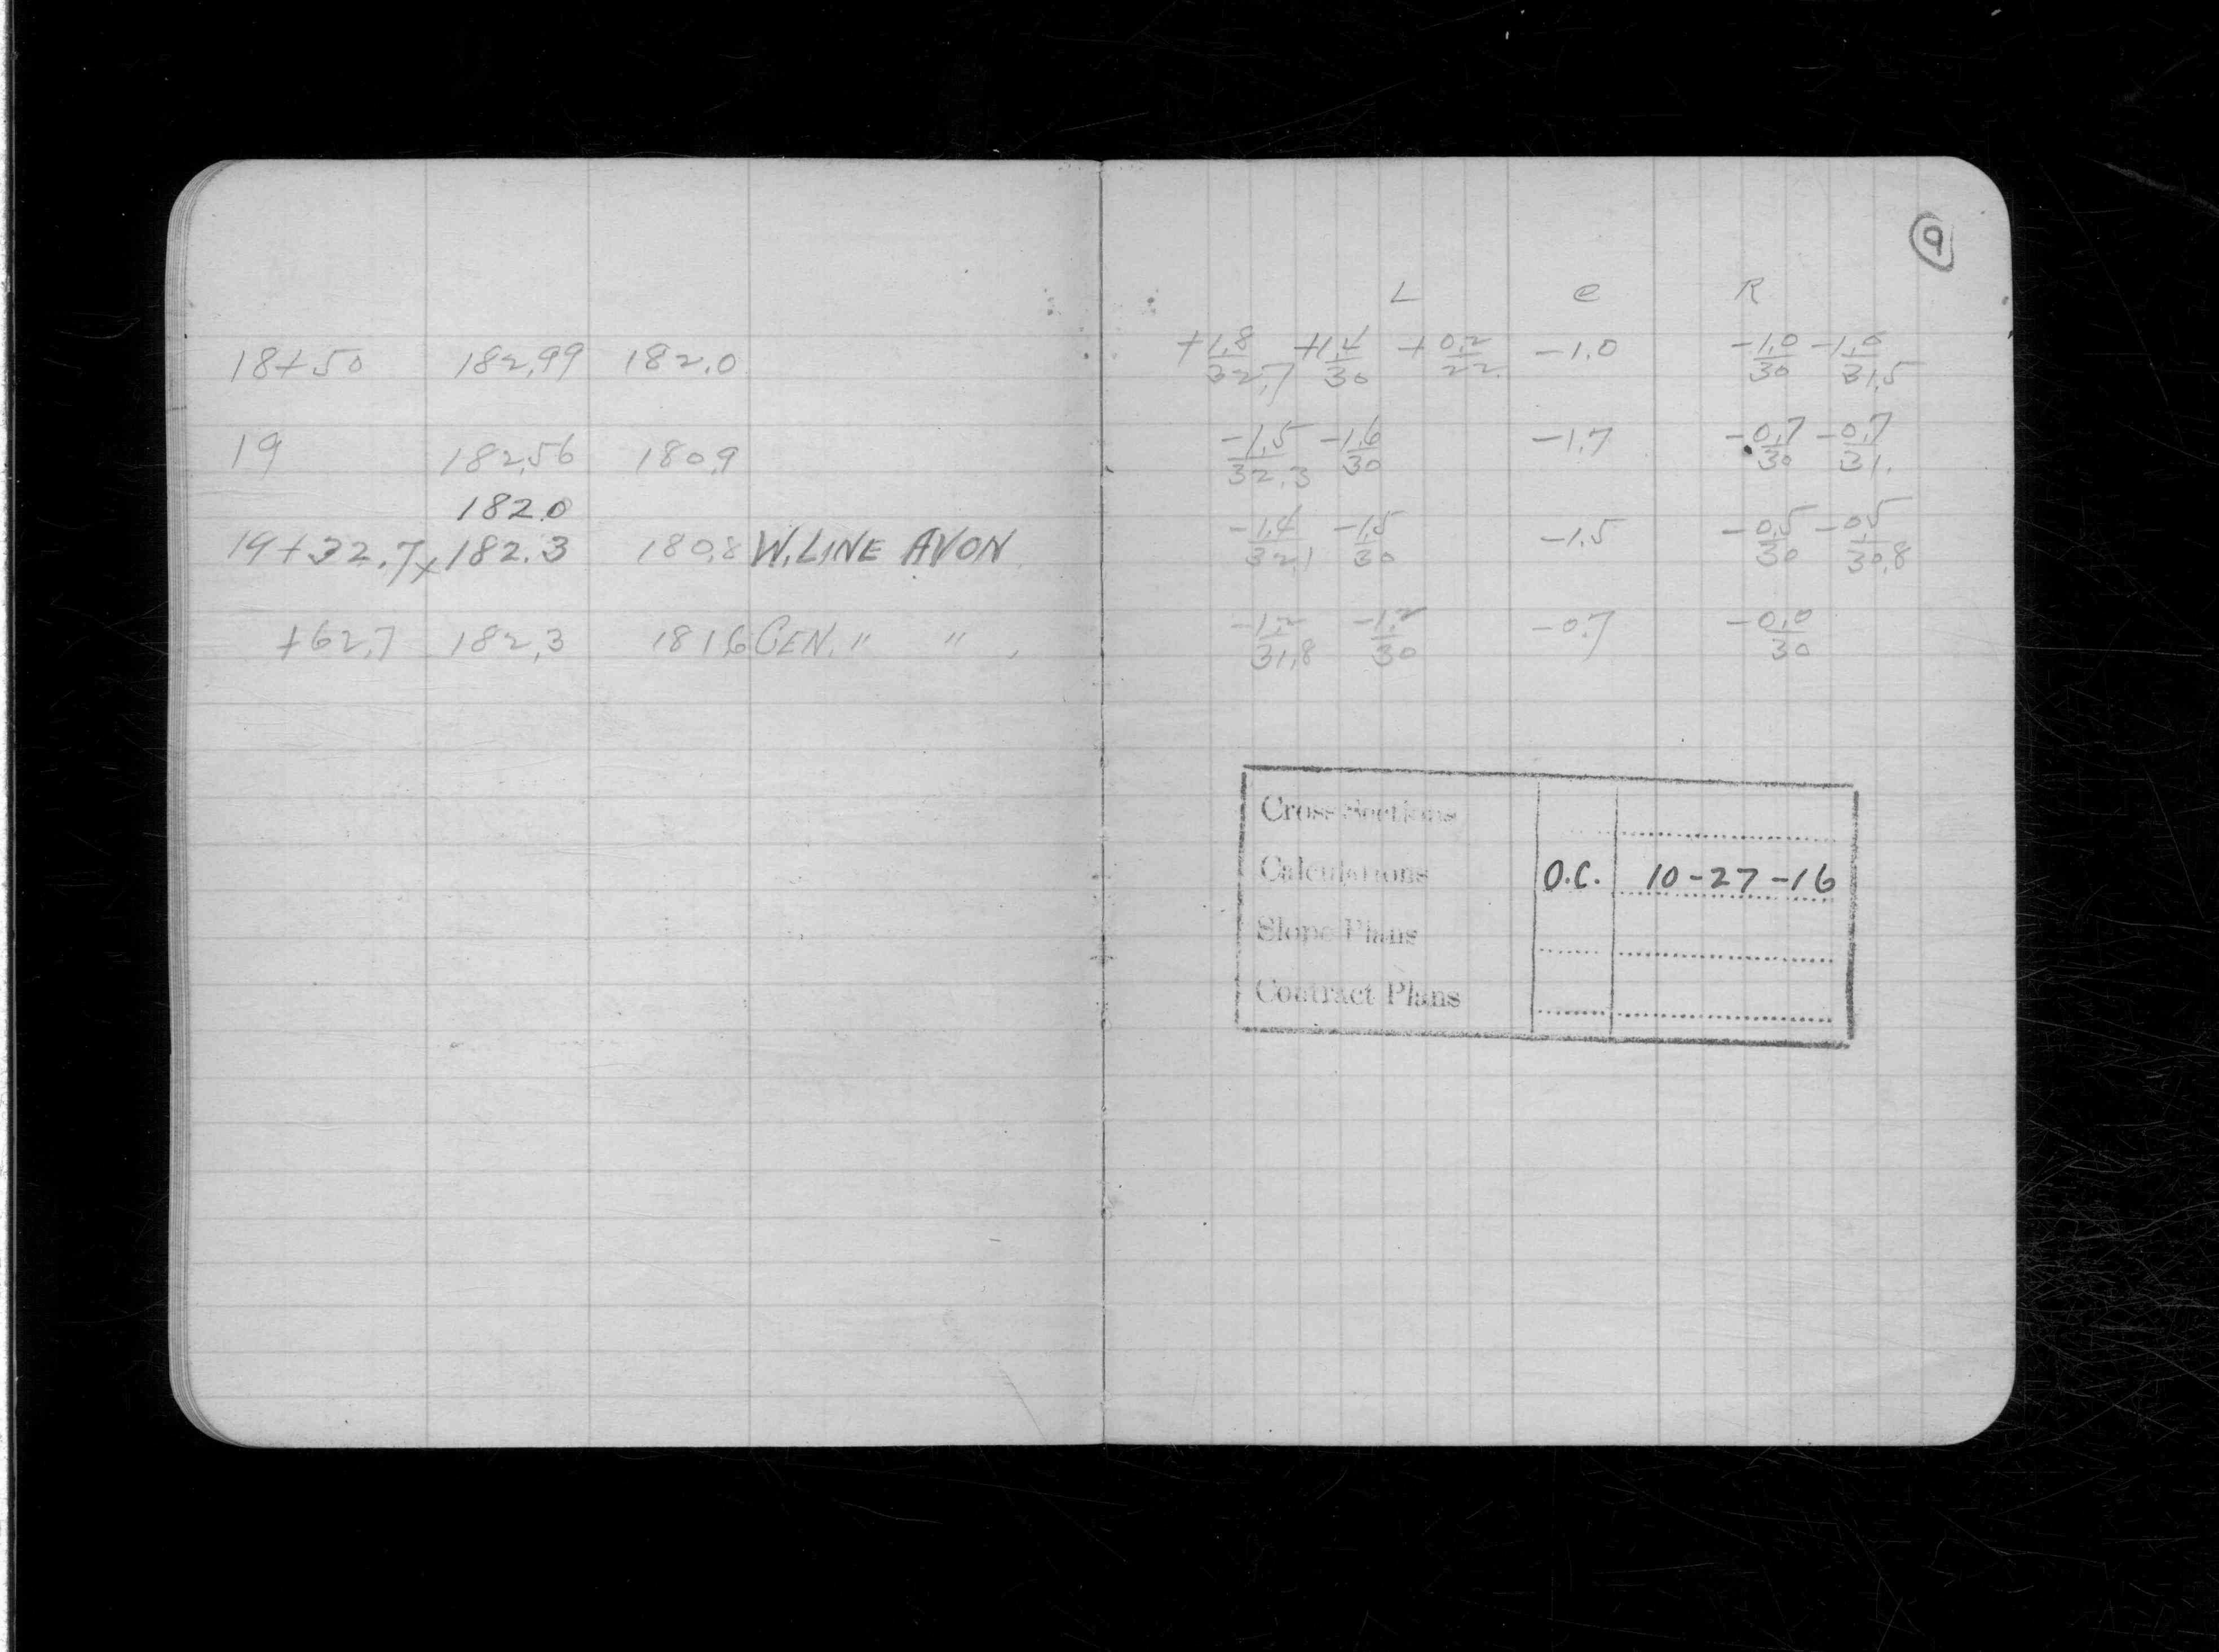 9
L C R
18+50 182.99 182.0 +1.8/32.7 +1.4/30 +0.2/22 -1.0 -1.0/30 -1.0/31.5
19 182.56 180.9 -1.5/32.3 -1.6/30 -1.7 -0.7/30 -0.7/31.
182.0
19+32.7x 182.3 180.8 W. LINE AVON -1.4/32.1 -1.5/30 -1.5 -0.5/30 -0.5/30.8
+62.7 182.3 181.6 CEN. " " -1.2/31.8 -1.2/30 -0.7 -0.0/30
Cross Sections
Calculations O.C. 10-27-16
Slope Plans
Contract Plans